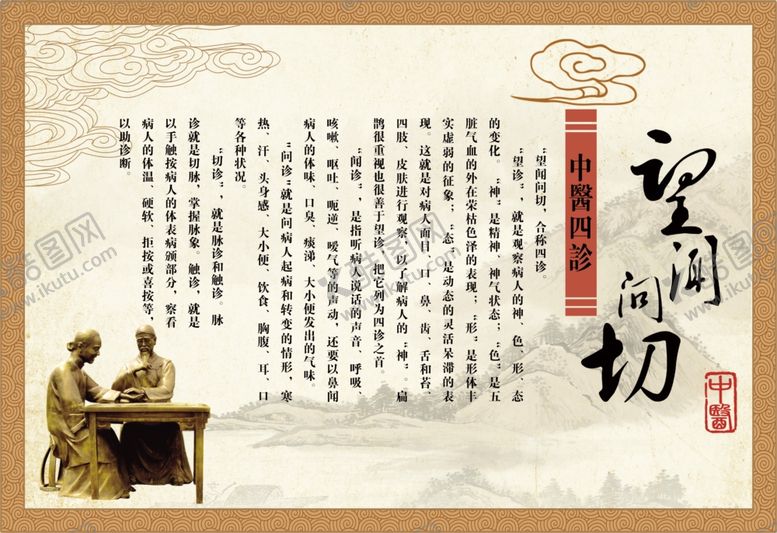 望闻问切
中醫
中醫四診
“望闻问切，合称四诊。
“望诊”，就是观察病人的神、色、形、态
的变化。“神”是精神、神气状态；“色”是五
脏气血的外在荣枯色泽的表现；“形”是形体丰
实虚弱的征象；“态”是动态的灵活呆滞的表
现。这就是对病人面目、口、鼻、齿、舌和苔、
四肢、皮肤进行观察，以了解病人的“神”。扁
鹊很重视也很善于望诊，把它列为四诊之首。
“闻诊”，是指听病人说话的声音、呼吸、
咳嗽、呕吐、呃逆、嗳气等的声动，还要以鼻闻
病人的体味、口臭、痰涕、大小便发出的气味。
“问诊”就是问病人起病和转变的情形，寒
热、汗、头身感、大小便、饮食、胸腹、耳、口
等各种状况。
“切诊”，就是脉诊和触诊。脉
诊就是切脉，掌握脉象。触诊，就是
以手触按病人的体表病颁部分，察看
病人的体温、硬软、拒按或喜按等，
以助诊断。
酷图网
www.ikutu.com